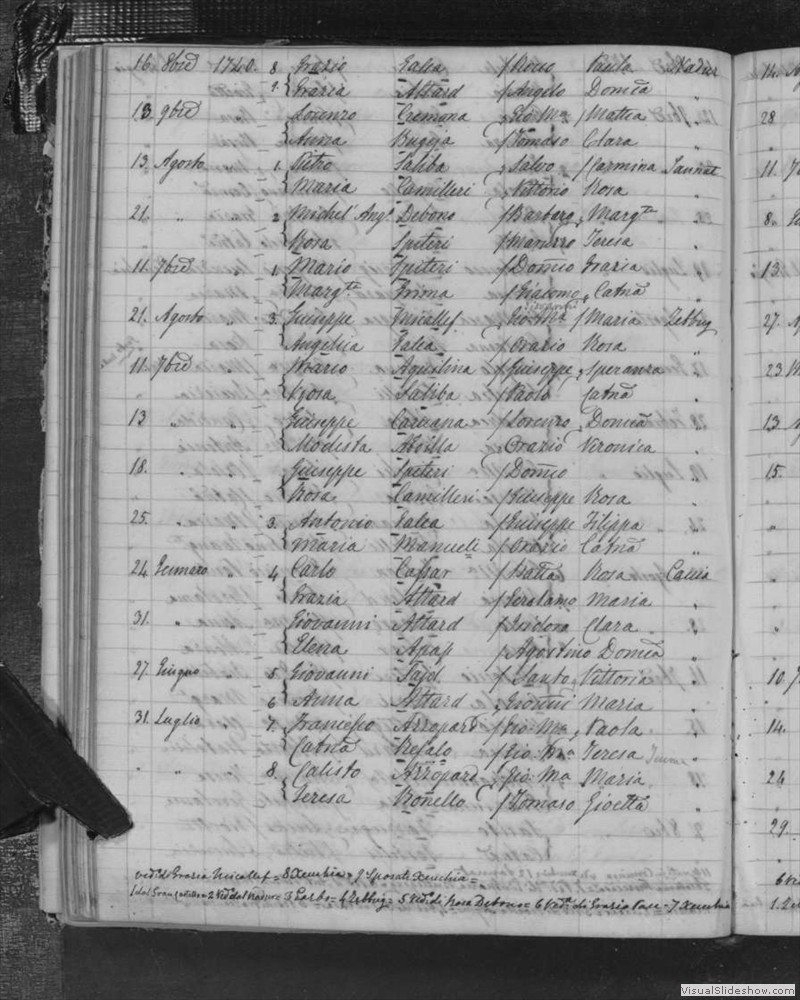 16. 8bre 1740. 8 Grazio Galea / Rosso Paula Nadur
9. Grazia Attard / Angelo Domca
13 9bre Lorenzo Cremona Gio Ma / Mattea
Anna Bugeja / Tomaso Clara
13. Agosto " 1. Pietro Saliba Salvo / Carmina Sannat
Maria Camilleri Vittorio Rosa "
21. " " 2 Michel' Ango Debono / Barbaro Margta
Rosa Spiteri Teresa
11. 7bre " 1. Mario Spiteri / Domco Grazia
Margta Grima / Giacomo Catna
21. Agosto " 3. Giuseppe Muscallef Gio Ma / Maria Zebbug
Angelica Galea / Orazio Rosa "
11. 7bre Agostina / Giuseppe Speranza
Rosa Saliba / Paolo Catna
13 " " Giuseppe Caruana / Lorenzo Domca
Modesta Abilla Orazio Veronica
18. " " Giuseppe Spiteri / Domco
Rosa Camilleri / Giuseppe Rosa
25. " " 3. Antonio Galea / Giuseppe Filippa
Maria Manueli / Orazio Catna
24 Gennaro " 4 Carlo Cassar / Batta Rosa Caccia
Grazia Attard / Geralamo Maria
31. " " Giovanni Attard / Isidoro Clara
Elena Apap / Agostino Domca
27. Giugno " 5 Giovanni / Santo Vittoria
6 Anna Attard Maria
31. Luglio " 7. Francesco Azzopard / Gio Ma Paola
Catna Refalo / Gio Ma Teresa
" " 8. Calisto Azzopard / Gio Ma Maria
Teresa Bonello / Tomaso
ved: di Grazia Muscallef = 8 Xeuchia = 9 Sposati Xeuchia =
1 dal Gran Castello = 2 Ved: dal Nadur = 3 Garbo = 4 Zebbug = 5 Ved: di Rosa Debono = 6 Ved: di Grazia Pace = 7 Xeuchia
14.
28
11.
8.
13.
27.
23.
13.
15.
10.
14.
24
29.
VisualSlideshow.com